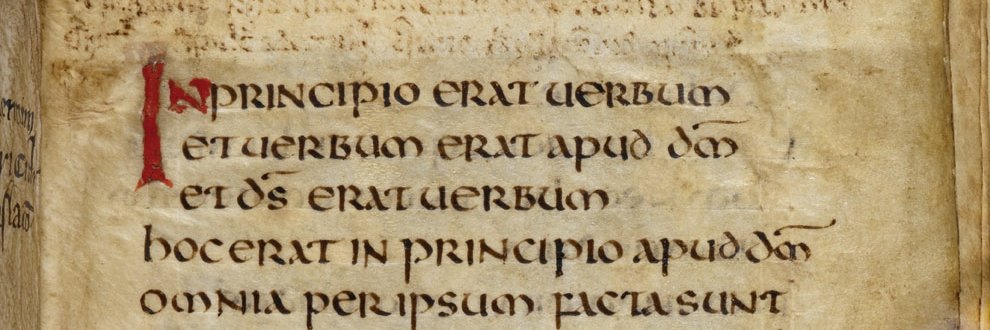 IN PRINCIPIO ERAT UERBUM
ET UERBUM ERAT APUD DM̄
ET DS̄ ERAT UERBUM
hOC ERAT IN PRINCIPIO APUD DM̄
OMNIA PER IPSUM FACTA SUNT